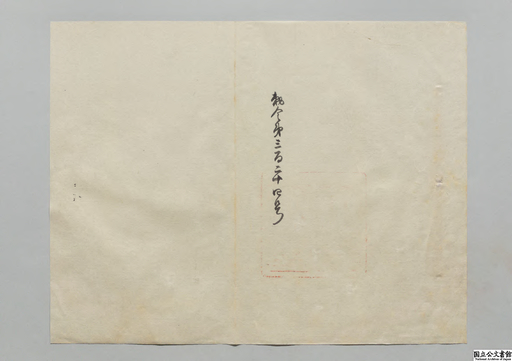 勅令第三百二十四号
国立公文書館
National Archives of Japan